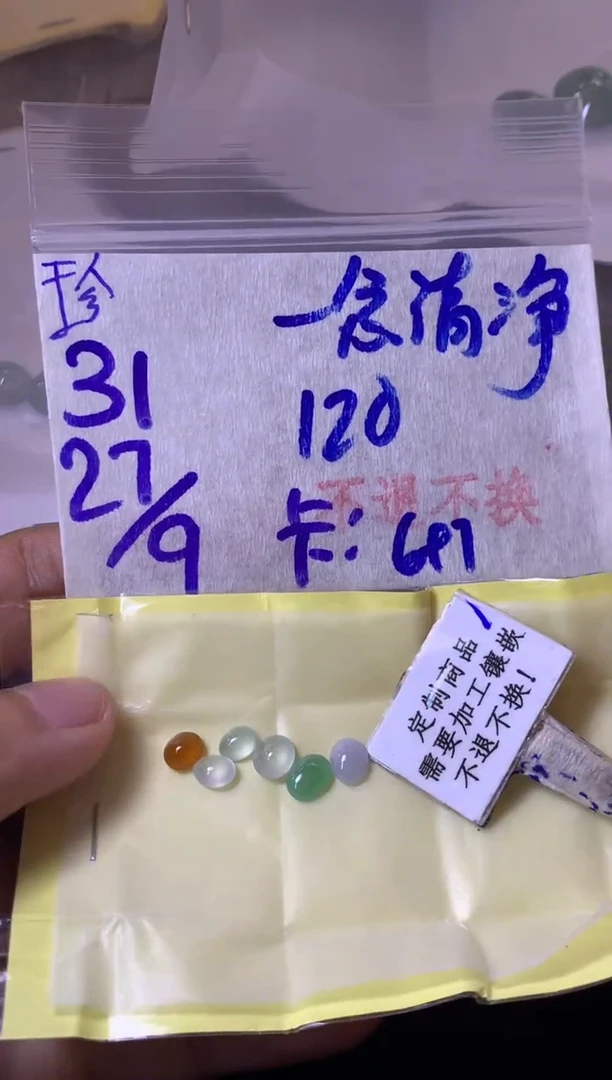 珍
31
27/9
一念清净
120
不退不换
卡: 617
定制商品
需要加工镶嵌
不退不换!